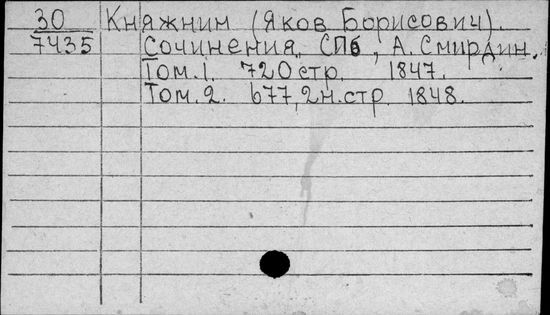 30 Княжнин (Яков Борисович).
7435 Сочинения, СПб, А. Смирдин.
Том. 1. 720 стр. 1847.
Том. 2. 677, 2 н. стр. 1848.